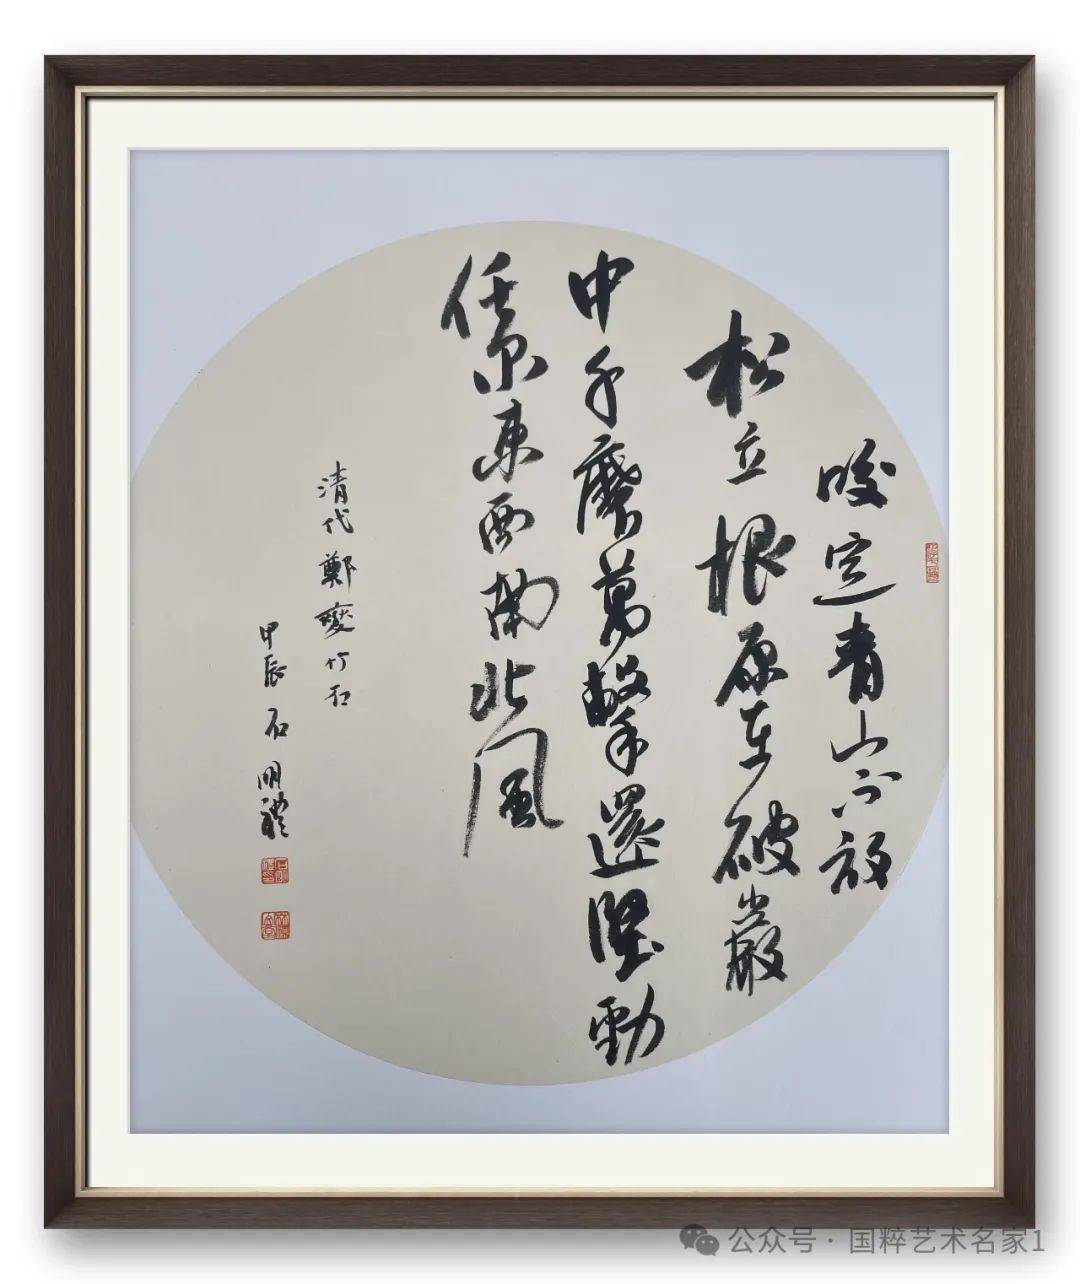 咬定青山不放
松立根原在破巖
中千磨萬擊還堅勁
任尔東西南北風
清代鄭燮竹石
甲辰石明禮
公众号 · 国粹艺术名家1